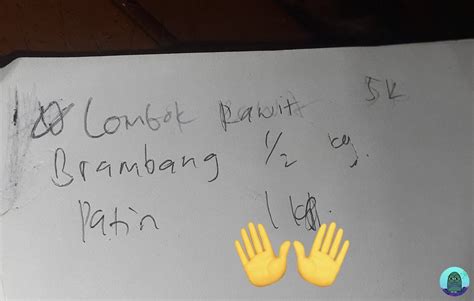 Lombok Rawit 5k
Brambang 1/2 kg.
Patin 1 kg.